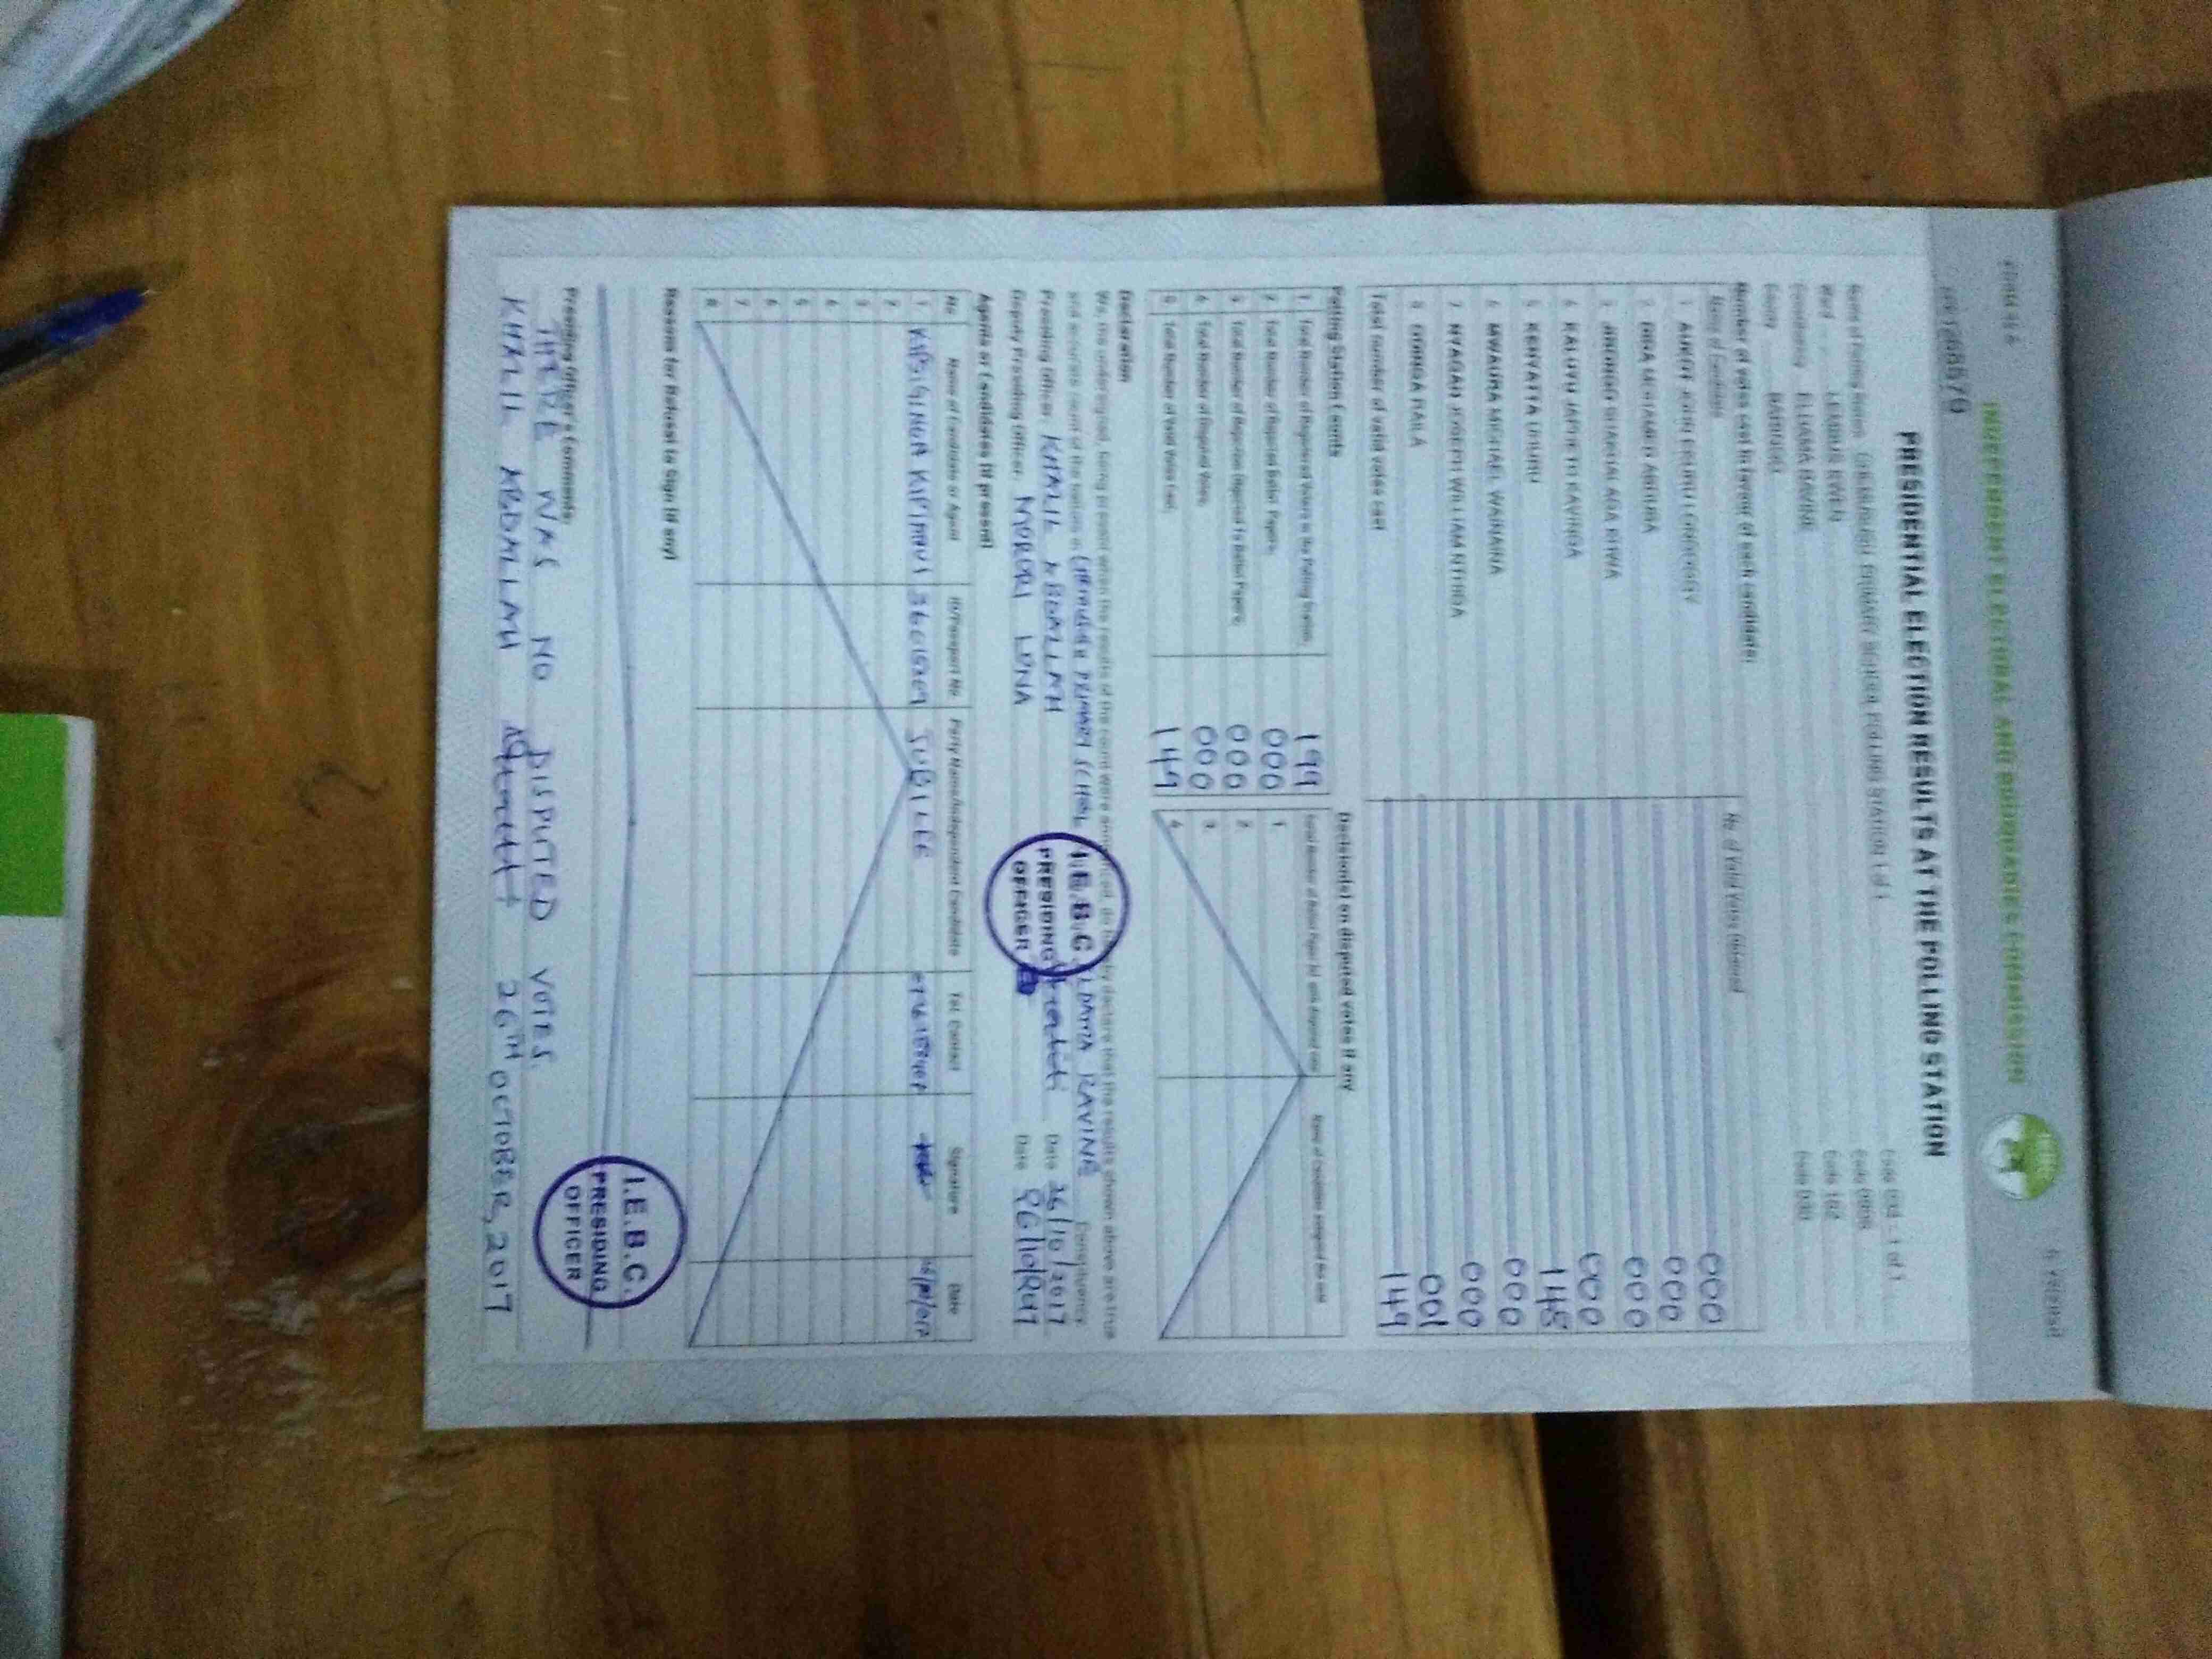 INDEPENDENT ELECTORAL AND BOUNDARIES COMMISSION
PRESIDENTIAL ELECTION RESULTS AT THE POLLING STATION
Name of Polling Station PRIMARY SCHOOL POLLING STATION 1 of 1 Code 001 - 1 of 1
Ward Code
Constituency ELDAMA RAVINE Code
County BARINGO Code 030
Number of votes cast in favour of each candidate:
Name of Candidate No. of Valid Votes Obtained
1 AUKOT EKURU 000
2 DIDA MOHAMED ABDUBA 000
3 JIRONGO SHAKHALAGA KHWA 000
4 KALUYU JAPHETH KAVINGA 000
5 KENYATTA UHURU 148
6 MWAURA MICHAEL WAINAINA 000
7 NYAGAH JOSEPH WILLIAM NTHIGA 000
8 ODINGA RAILA 001
Total number of valid votes cast 149
Polling Station Counts
1. Total Number of Registered Voters in the Polling Station 199
2. Total Number of Rejected Ballot Papers 000
3. Total Number of Rejection Objected To Ballot Papers 000
4. Total Number of Disputed Votes 000
5. Total Number of Valid Votes Cast 149
Decision(s) on disputed votes if any
1
2
3
4
Declaration
We, the undersigned, being present when the results of the count were announced, do hereby declare that the results shown above are true
and accurate count of the ballots in PRIMARY SCHOOL ELDAMA RAVINE Constituency
Presiding Officer KHALIL ABDALLAH Date 26/10/2017
Deputy Presiding Officer MORORI LDNA Date 26/10/2017
I.E.B.C.
PRESIDING
OFFICER
Agents or Candidates (if present)
No Name of Candidate or Agent ID/Passport No Party Name/Independent Candidate Tel. Contact Signature Date
1 JUBILEE
2
3
4
5
6
7
8
Reasons for Refusal to Sign (if any)
I.E.B.C.
PRESIDING
OFFICER
Presiding Officer's Comments:
THERE WAS NO DISPUTED VOTES.
KHALIL ABDALLAH 26TH OCTOBER, 2017